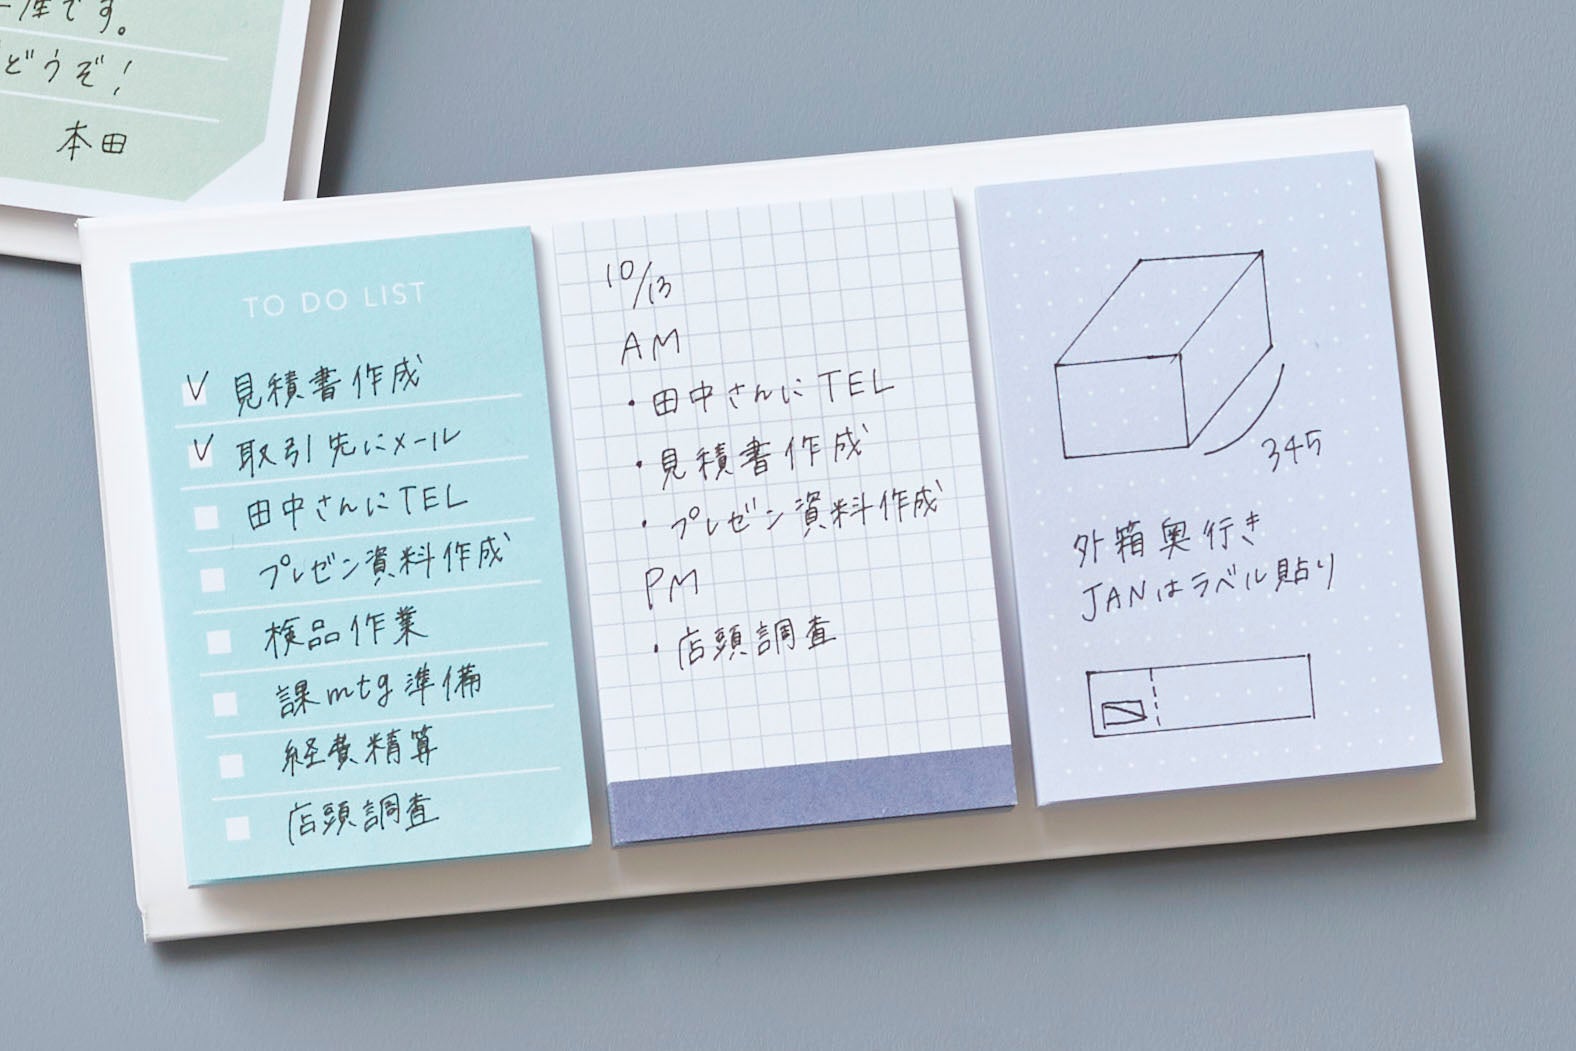 座です。
どうぞ!
本田
TO DO LIST
見積書作成
取引先にメール
田中さんにTEL
プレゼン資料作成
検品作業
課mtg準備
経費精算
店頭調査
10/13
AM
・田中さんにTEL
・見積書作成
・プレゼン資料作成
PM
・店頭調査
345
外箱奥行き
JANはラベル貼り